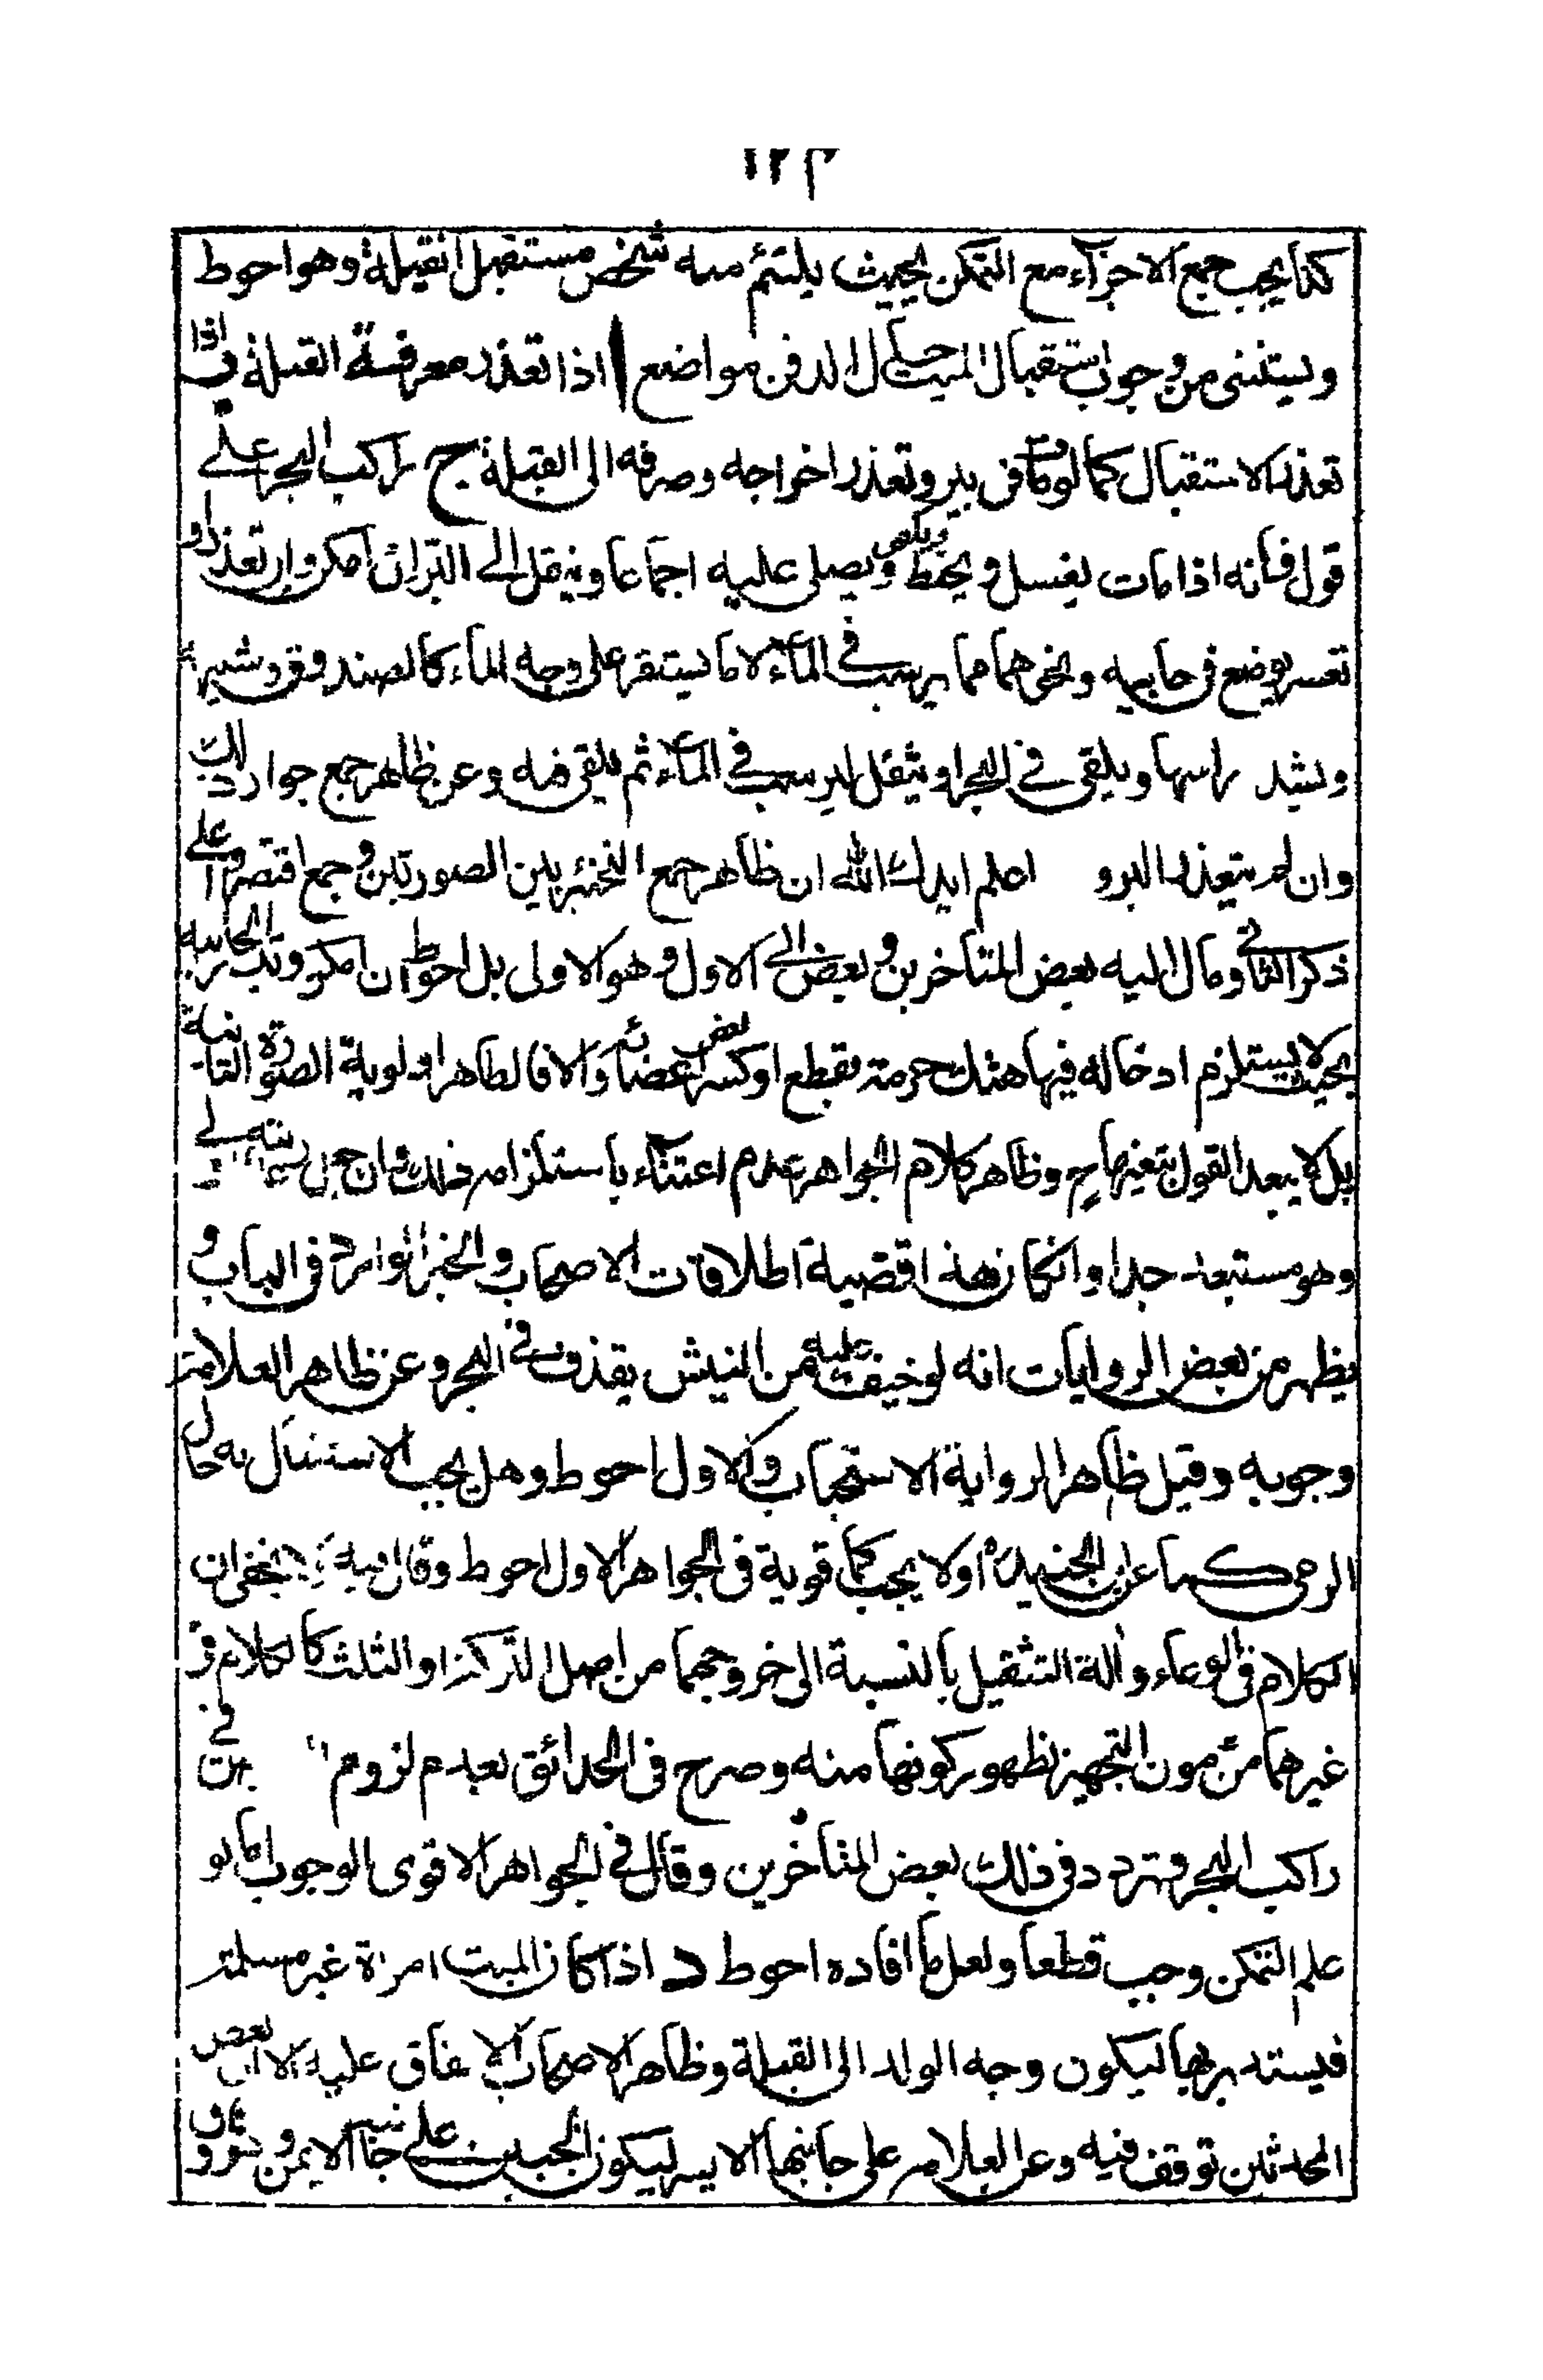 ١٢٣
كذا يجب جمع الاجزآء مع التمكن بحيث يلتئم منه شخص مستقبل القبلة وهو احوط
ويستثنى من وجوب استقبال الميت حال الدفن مواضع ا اذا تعذر معرفة القبلة ب اذا
تعذر الاستقبال كما لو مات فى بير وتعذر اخراجه وصرفه الى القبلة ج راكب البحر على
قول فانه اذا مات يغسل ويحنط ويكفن ويصلى عليه اجماعا وينقل الى البر ان امكن وان تعذر او
تعسر يوضع فى خابيه ونحوهما مما يرسب فى المآء لا ما يستقر على وجه المآء كالصندوق وشبهه
ويشد راسها ويلقى فى البحر او يثقل ليرسب فى المآء ثم يلقى فيه وعن ظاهر جمع جواز ذلك
وان لم يتعذر البر و اعلم ايدك الله ان ظاهر جمع التخيير بين الصورتين وجمع اقتصروا على
ذكر الثانى ومال اليه بعض المتاخرين وبعض الى الاول وهو الاولى بل احوط ان امكن وتيسر الخابيه
بحيث لا يستلزم ادخاله فيها هتك حرمته بقطع او كسر بعض اعضائه والا فالظاهر اولوية الصورة الثانية
بل لا يبعد القول بتعينها ح وظاهر كلام الجواهر عدم اعتنآء باستلزامه ذلك وان جل
وهو مستبعد جدا وان كان هذا قضية اطلاقات الاصحاب والخبر الوارد فى الباب و
يظهر من بعض الروايات انه لو خيف عليه من النبش يقذف فى البحر وعن ظاهر العلامة
وجوبه وقيل ظاهر الرواية الاستحباب والاول احوط وهل يجب الاستقبال به حال
الرمى كما عن ابن الجنيد او لا يجب كما قوية فى الجواهر الاول احوط وقال فيه لا يخفى ان
الكلام فى الوعاء وآلة التثقيل بالنسبة الى خروجهما من اصل التركة او الثلث كالكلام فى
غيرهما من مون التجهيز لظهور كونها منه وصرح فى الحدائق بعدم لزوم فى
راكب البحر وتردد فى ذلك بعض المتأخرين وقال فى الجواهر الاقوى الوجوب اما لو
علم التمكن وجب قطعا ولعل ما افاده احوط د اذا كان الميت امراة غير مسلمة
فيستدبر بها ليكون وجه الولد الى القبلة وظاهر الاصحاب الاتفاق عليه الا ان بعض
المحدثين توقف فيه وعن العلامه على جانبها الايسر ليكون الجنين على جانبه الايمن و